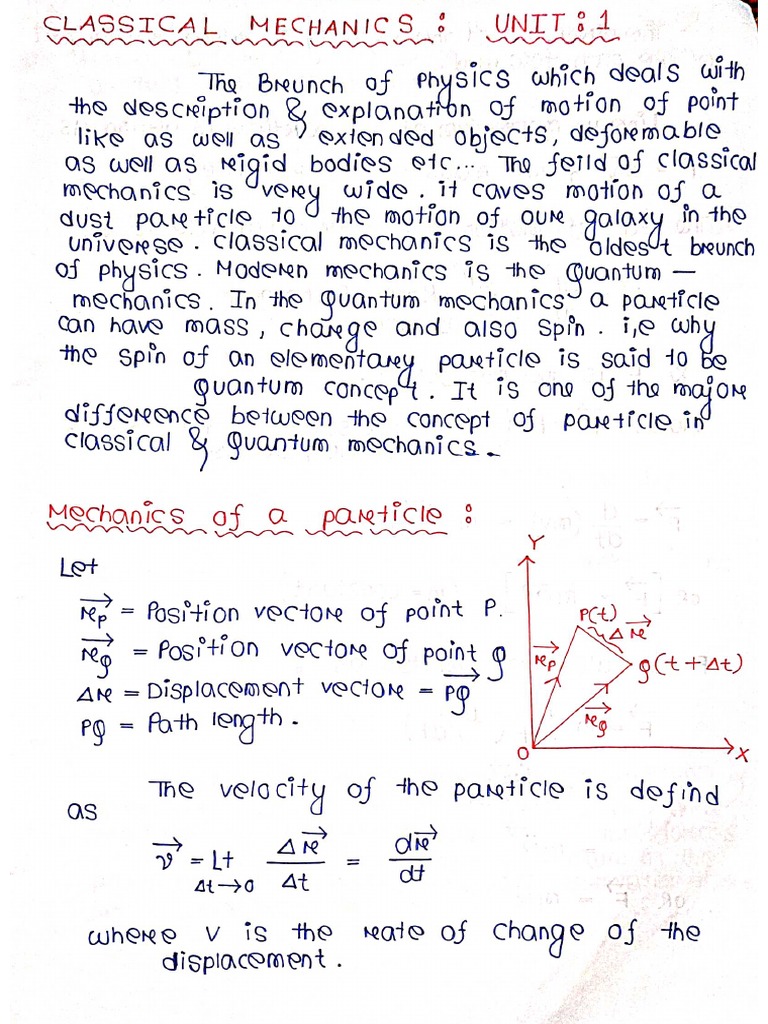 CLASSICAL MECHANICS : UNIT : 1
The Breunch of Physics which deals with
the description & explanation of motion of point
like as well as extended objects, deformable
as well as rigid bodies etc... The feild of classical
mechanics is very wide. it caves motion of a
dust particle to the motion of our galaxy in the
universe. classical mechanics is the oldest breunch
of physics. Modern mechanics is the Quantum —
mechanics. In the quantum mechanics a particle
can have mass, charge and also spin. i,e why
the spin of an elementary particle is said to be
quantum concept. It is one of the major
difference between the concept of particle in
classical & quantum mechanics.
Mechanics of a particle :
Let
$\vec{r_P}$ = Position vector of point P.
$\vec{r_Q}$ = Position vector of point Q
Δr = Displacement vector = $\vec{PQ}$
PQ = Path length.
Y
P(t)
$\Delta\vec{r}$
$\vec{r_P}$
Q(t + Δt)
$\vec{r_Q}$
O
X
The velocity of the particle is defind
as
$\vec{v} = Lt_{\Delta t \to 0} \frac{\Delta\vec{r}}{\Delta t} = \frac{d\vec{r}}{dt}$
where V is the rate of change of the
displacement.